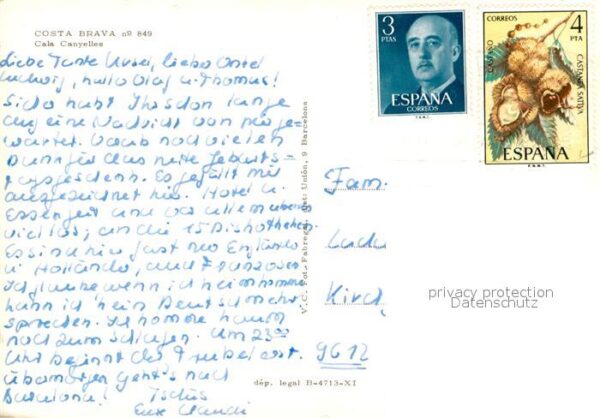 COSTA BRAVA nº 849
Cala Canyelles
Liebe Tante Ursel, lieber Onkel
Ludwig, hallo Olaf u. Thomas!
Sicher habt Ihr schon lange
auf eine Nachricht von mir ge-
wartet. Vorab noch vielen
Dank für das nette Geburts-
tagsgeschenk. Es gefällt mir
ausgezeichnet hier. Hotel u.
Essen gut und vor allem
vielles; und die 15 Diskotheken.
Es sind hier fast nur Engländer
u. Holländer, und Franzosen.
Ich glaube wenn ich heimkomme
kann ich kein Deutsch mehr
sprechen. Ich komme kaum
noch zum schlafen. Um 23 00
Uhr beginnt der Trubel erst.
Übermorgen geht's nach
Barcelona! Tschüs
Eure
V. C. Fot. Fabregat Unión, 9 Barcelona
dép. legal B-4713-XI
3
PTAS
ESPAÑA
CORREOS
F.N.M.T.
CORREOS
4
PTA
CASTAÑO
CASTANEA SATIVA
ESPAÑA
F.N.M.T.
Fam.
Kirch
9612
privacy protection
Datenschutz